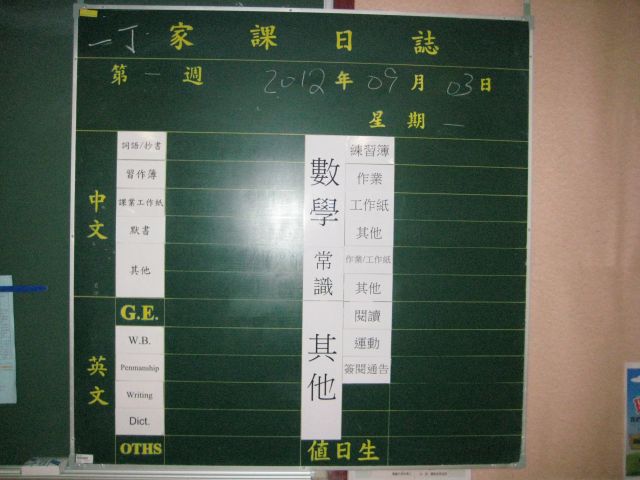 一丁 家課日誌
第一週 2012年09月03日
星期一
中文
詞語/抄書
習作簿
課業工作紙
默書
其他
G.E.
英文
W.B.
Penmanship
Writing
Dict.
OTHS
數學
練習簿
作業
工作紙
其他
常識
作業/工作紙
其他
其他
閱讀
運動
簽閱通告
值日生